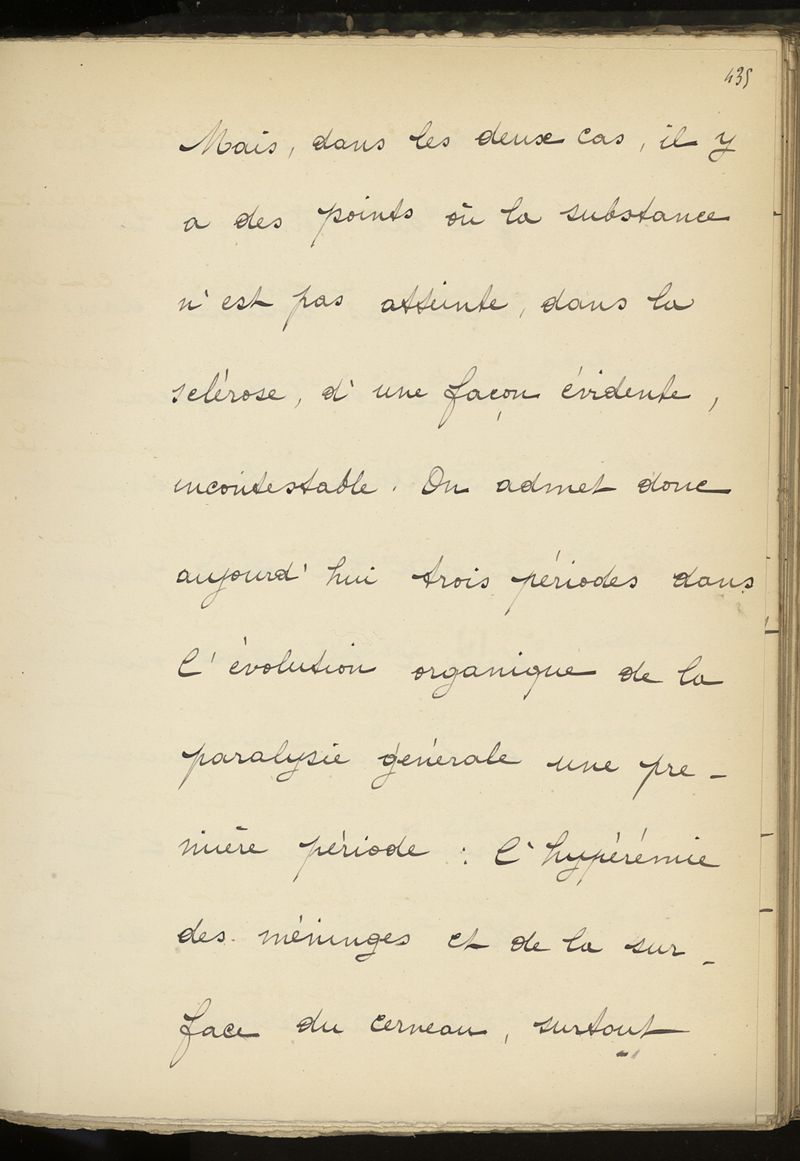 435
Mais, dans les deux cas, il y
a des points où la substance
n'est pas atteinte, dans la
sclérose, d'une façon évidente,
incontestable. On admet donc
aujourd'hui trois périodes dans
l'évolution organique de la
paralysie générale une pre-
mière période : l'hypérémie
des méninges et de la sur-
face du cerveau, surtout